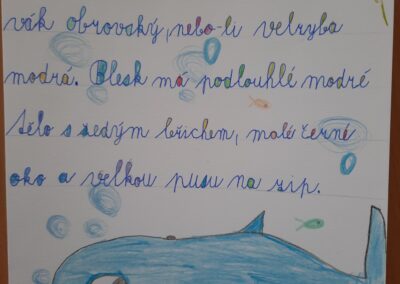 vák obrovský, nebo-li velryba
modrá. Blesk má podlouhlé modré
tělo s šedým břichem, malé černé
oko a velkou pusu na zip.